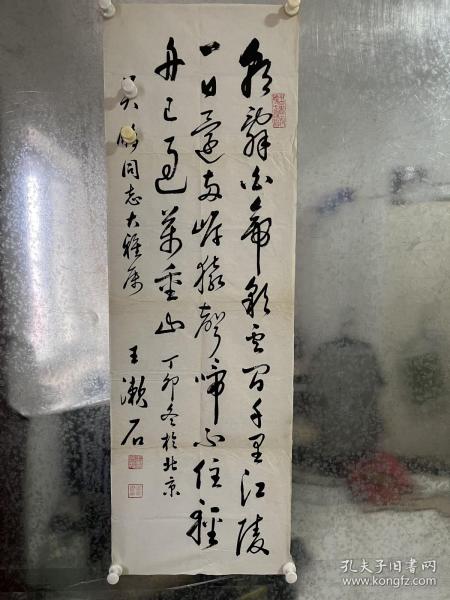 朝辞白帝彩云间千里江陵
一日还两岸猿声啼不住轻
舟已过万重山 丁卯冬于北京
吴鹏同志大雅属 王漱石
孔夫子旧书网
www.kongfz.com